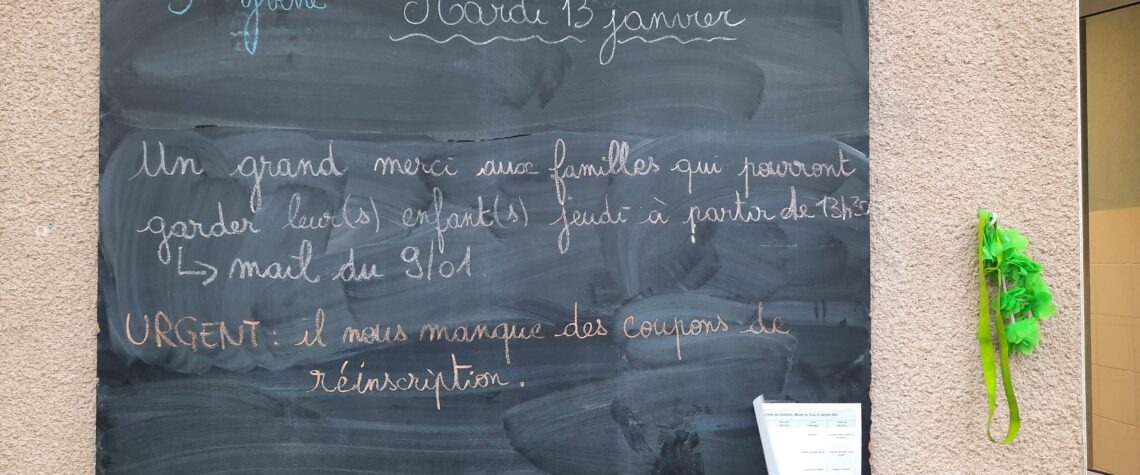 Mardi 13 janvier
Un grand merci aux familles qui pourront
garder leur(s) enfant(s) jeudi à partir de 13h30
↳ mail du 9/01.
URGENT : il nous manque des coupons de
réinscription.